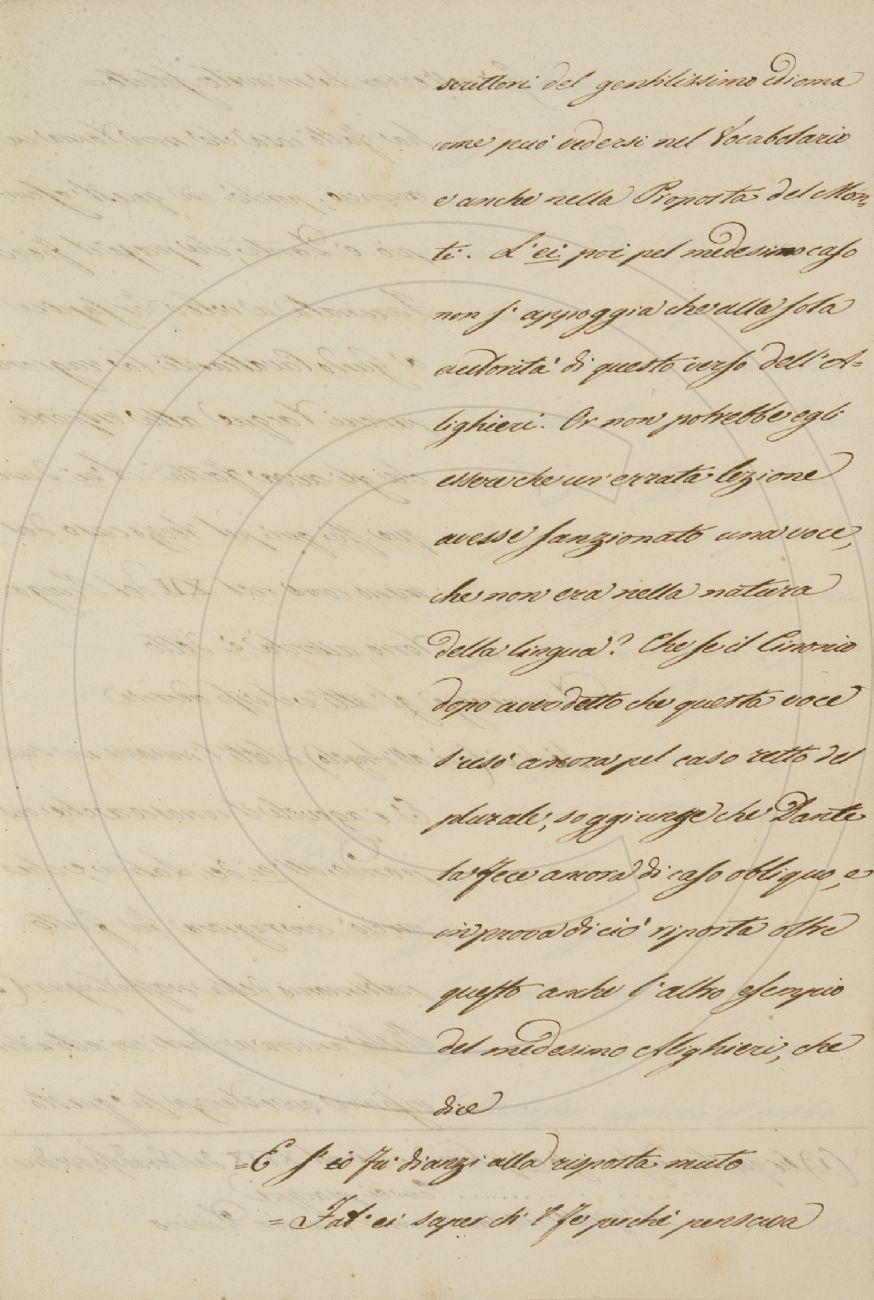 scrittori del gentilissimo idioma
come può vedersi nel Vocabolario
e anche nella Proposta del Mon=
ti. L'ei poi pel medesimo caso
non s'appoggia che alla sola
autorità di questo verso dell'A=
lighieri. Or non potrebbe egli
essere che un'errata lezione
avesse sanzionato una voce,
che non era nella natura
della lingua? Che se il Cinonio
dopo aver detto che questa voce
s'usò ancora pel caso retto del
plurale, soggiunge che Dante
la fece ancora di caso obliquo, e
in prova di ciò riporta oltre
questo anche l'altro esempio
del medesimo Alighieri, che
dice
=E s'io fu' dianzi alla risposta muto
=Fat'ei saper ch'l fe' perchè pensava